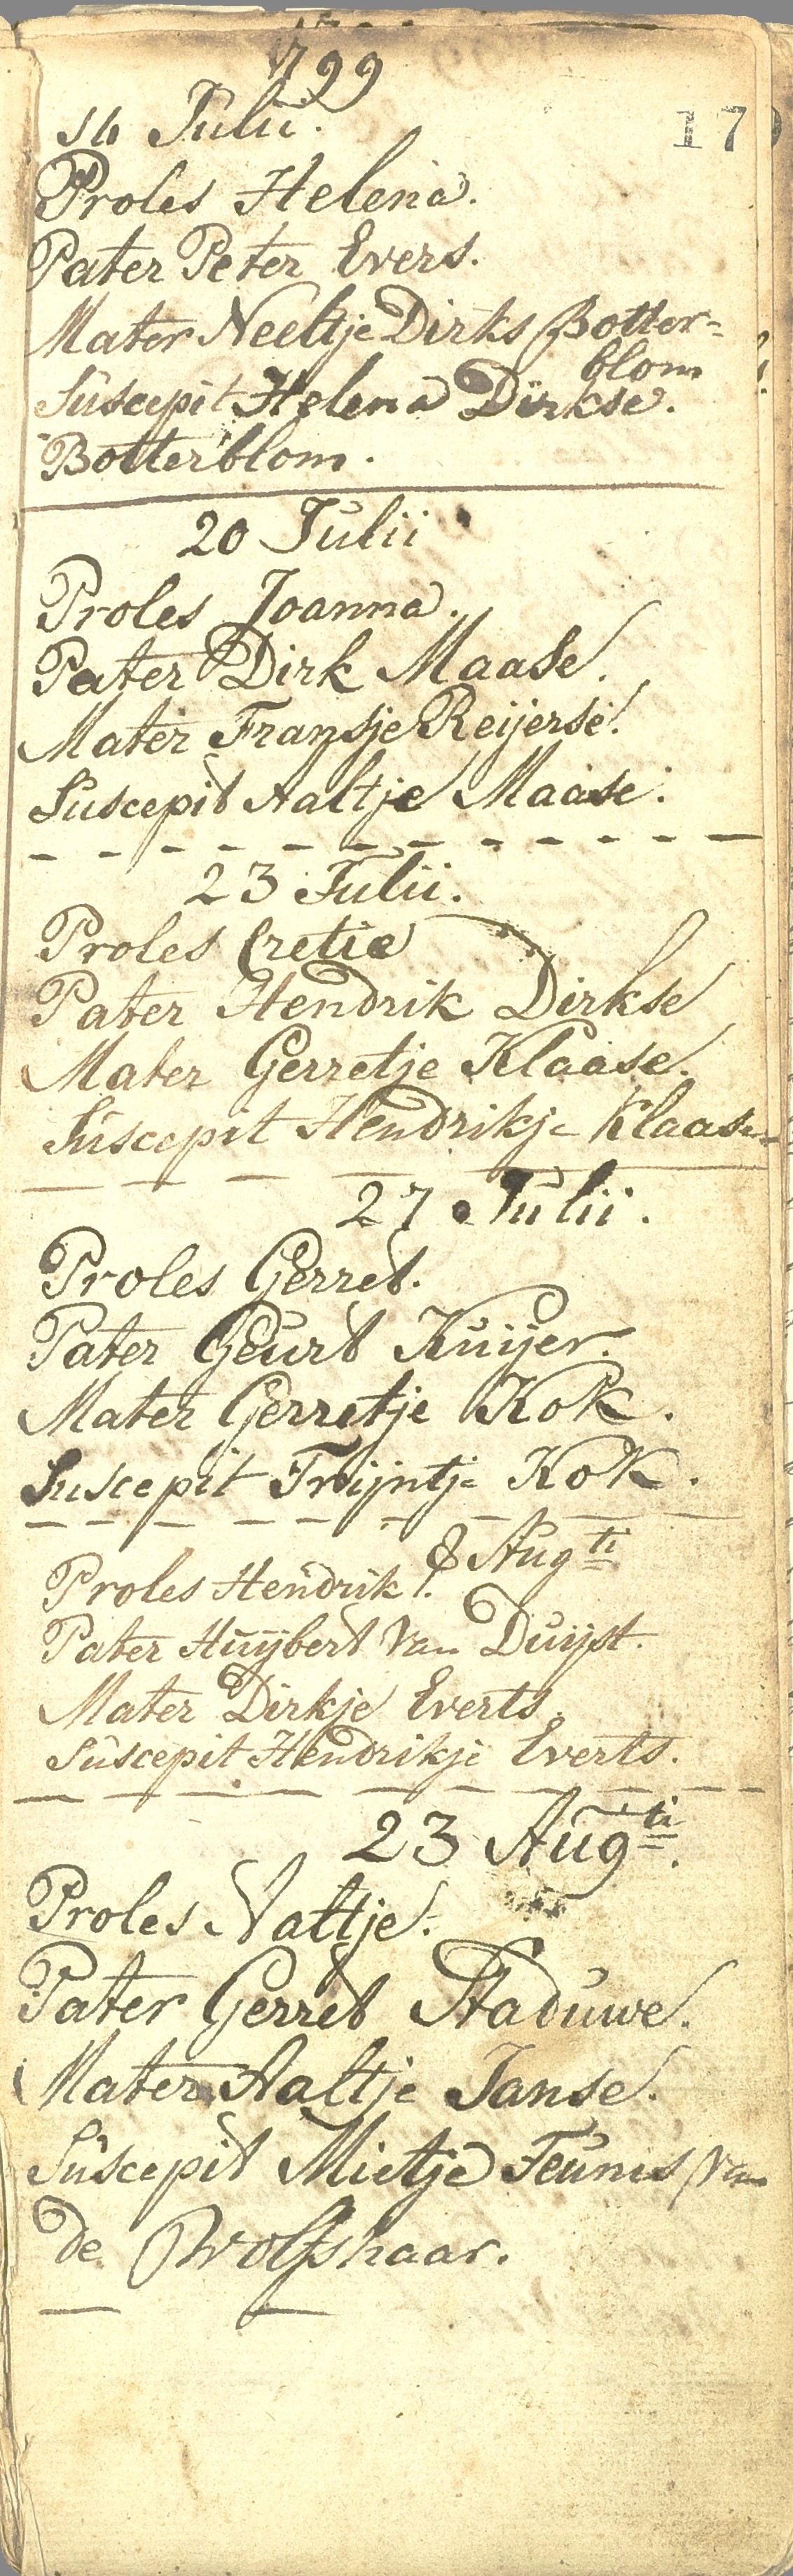 1799
14 Julii.
170
Proles Helena.
Pater Peter Evers.
Mater Neeltje Dirks Botter=
blom
Suscepit Helena Dirkse.
Botterblom.
20 Julii
Proles Joanna.
Pater Dirk Maase.
Mater Fransje Reijerse.
Suscepit Aaltje Maase.
23 Julii.
Proles Cretie
Pater Hendrik Dirkse
Mater Gerretje Klaase.
Suscepit Hendrikje Klaase
27 Julii.
Proles Gerret.
Pater Geurt Kuijer.
Mater Gerretje Kok.
Suscepit Trijntje Kok.
8 Augti
Proles Hendrik.
Pater Huijbert Van Duijst.
Mater Dirkje Everts.
Suscepit Hendrikje Everts.
23 Augti.
Proles Naltje.
Pater Gerret Staduwe.
Mater Aaltje Janse.
Suscepit Mietje Teunis Van
de Wolfshaar.